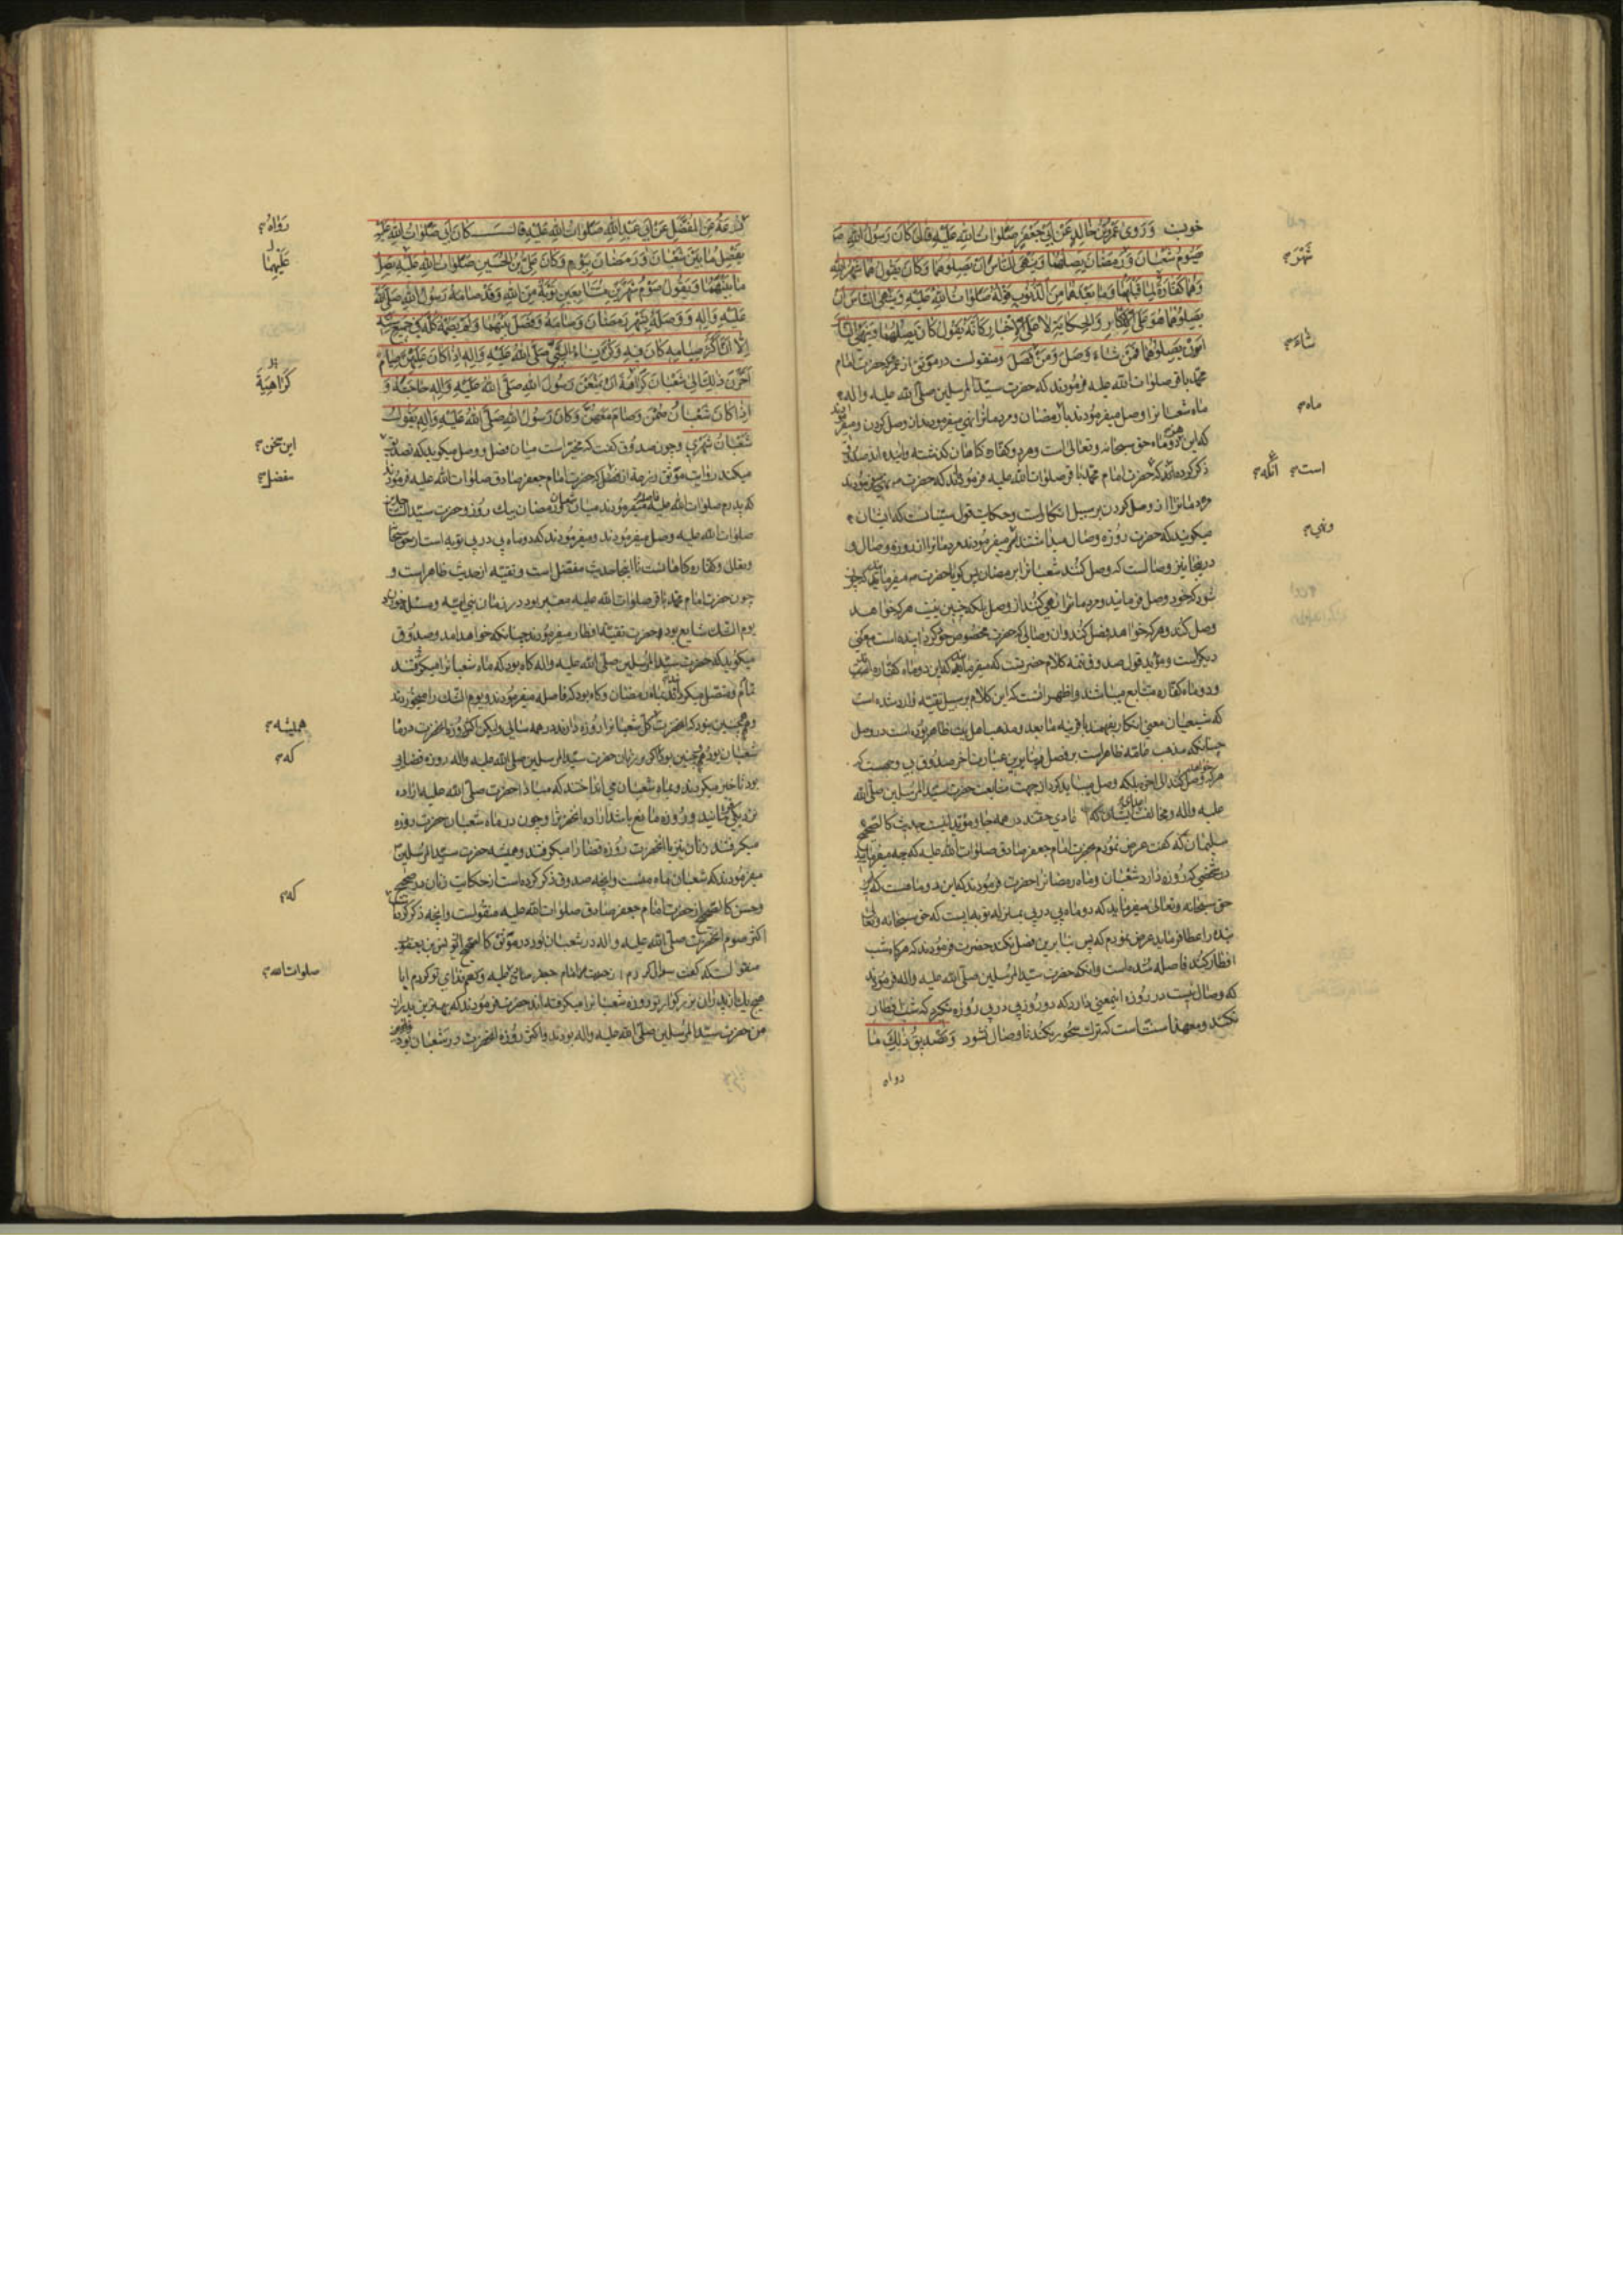 خوبست وَرَوى عَمْرُو بْنُ خالِدٍ عَنْ اَبي جَعْفَرٍ صَلَواتُ اللهِ عَلَيْهِ قالَ كانَ رَسُولُ اللهِ صَ
يَصُومُ شَعْبانَ وَرَمَضانَ يَصِلُهُما وَيَنْهَى النّاسَ اَنْ يَصِلُوهُما وَكانَ يَقُولُ هُما شَهْرُ اللهِ
وَهُما كَفّارَةٌ لِما قَبْلَهُما وَما بَعْدَهُما مِنَ الذُّنُوبِ قَوْلُهُ صَلَواتُ اللهِ عَلَيْهِ وَيَنْهَى النّاسَ اَنْ
يَصِلُوهُما هُوَ عَلَى الْاِنْكارِ وَالْحِكايَةِ لا عَلَى الْاِخْبارِ كَاَنَّهُ يَقُولُ كانَ يَصِلُهُما وَيَنْهَى النّا
اَنْ يَصِلُوهُما فَمَنْ شاءَ وَصَلَ وَمَنْ فَصَلَ ومنقولست در موثق از عمرو كه حضرت امام
محمد باقر صلوات الله عليه فرمودند كه حضرت سيد المرسلين صلى الله عليه واله
ماه شعبانرا وصل ميفرمودند با رمضان ومردمانرا نهي ميفرمودند از وصل كردن وميفر
كه اين دو ماه حق سبحانه وتعالى است وهر دو كفاره كناهان كذشته واينده اند صدوق
ذكر كرده كه حضرت امام محمد باقر صلوات الله عليه فرمودند كه حضرت
مردمانرا از وصل كردن بر سبيل انكاراست وحكايت قول سنيانست كه ايشان
ميكويند كه حضرت روزه وصال ميداشتند ميفرمودند مردمانرا از روزه وصال و
در اينجا نيز وصالست كه وصل كنند شعبانرا برمضان پس كويا حضرت ميفرمايد كه چون
شود كه خود وصل فرمايند ومردمانرا نهي كنند از وصل بلكه چنين نيست هر كه خواهد
وصل كند وهر كه خواهد فصل كند وان وصالى كه حضرت مخصوص خود كردانيده است معني
ديكراست ومؤيد قول صدوق تتمه كلام حضرتست كه ميفرمايد كه اين دو ماه كفاره است
ودو ماه كفاره متتابع ميباشند واظهر انست كه اين كلام بر سبيل تقيه وارد شده است
كه شيعيان معني انكار بفهمند با قرينه ما بعد ومذهب اهل بيت ظاهر بوده است در وصل
چنانكه مذهب عامه ظاهراست بر فصل وبنابرين عبارت اخر صدوق بي وجهست كه
هر كه وصل كند الى اخره بلكه وصل ميبايد كرد از جهت متابعت حضرت سيد المرسلين صلى الله
عليه واله ومخالفت ايشان كه هادي حقند در همه جا ومؤيد اينست حديث كالصحيح
سليمان كه كفت عرض نمودم بحضرت امام جعفر صادق صلوات الله عليه كه چه ميفرمايند
در شخصي كه روزه دارد شعبان وماه رمضانرا حضرت فرمودند كه اين دو ماهست كه
حق سبحانه وتعالى ميفرمايد كه دو ماه پي در پي بمنزله توبه ايست كه حق سبحانه وتعالى
بنده را عطا فرمايد عرض نمودم كه پس بنابرين فصل نكند حضرت فرمودند كه هركاه شب
افطار كند فاصله شده است وانكه حضرت سيد المرسلين صلى الله عليه واله فرمودند
كه وصال نيست در روزه اينمعني دارد كه دو روز پي در پي روزه نكيرد كه شب افطار
نكند ومعهذا سنت است كه ترك سحور نكند تا وصال نشود وَتَصْديقُ ذلِكَ ما
رواه
شَهْرَ
شاءَ
ماه
است
ونهي
زُرْعَةُ عَنِ الْمُفَضَّلِ عَنْ اَبي عَبْدِ اللهِ صَلَواتُ اللهِ عَلَيْهِ قالَ كانَ اَبي صَلَواتُ اللهِ عَلَيْهِ
يَفْصِلُ ما بَيْنَ شَعْبانَ وَرَمَضانَ بِيَوْمٍ وَكانَ عَلِيُّ بْنُ الْحُسَيْنِ صَلَواتُ اللهِ عَلَيْهِ يَصِلُ
ما بَيْنَهُما وَيَقُولُ صَوْمُ شَهْرَيْنِ مُتَتابِعَيْنِ تَوْبَةٌ مِنَ اللهِ وَقَدْ صامَهُ رَسُولُ اللهِ صَلَّى اللهُ
عَلَيْهِ وَآلِهِ وَوَصَلَهُ بِشَهْرِ رَمَضانَ وَصامَهُ وَفَصَلَ بَيْنَهُما وَلَمْ يَصُمْهُ كُلَّهُ في جَميعِ
اِلّا اَنَّ اَكْثَرَ صِيامِهِ كانَ فيهِ وَكُنَّ نِساءُ النَّبِيِّ صَلَّى اللهُ عَلَيْهِ وَآلِهِ اِذا كانَ عَلَيْهِنَّ صِيامٌ
اَخَّرْنَ ذلِكَ اِلى شَعْبانَ كَراهَةَ اَنْ يَمْنَعْنَ رَسُولَ اللهِ صَلَّى اللهُ عَلَيْهِ وَآلِهِ حاجَتَهُ وَ
اِذا كانَ شَعْبانُ صُمْنَ وَصامَ مَعَهُنَّ وَكانَ رَسُولُ اللهِ صَلَّى اللهُ عَلَيْهِ وَآلِهِ يَقُولُ
شَعْبانُ شَهْري وچون صدوق كفت كه مخير است ميان فصل ووصل ميكويد كه تصديق
ميكند روايت موثق زرعة از مفضل كه حضرت امام جعفر صادق صلوات الله عليه فرمود
كه پدرم صلوات الله عليه فاصله ميفرمودند ميان شعبان ورمضان بيك روز وحضرت سيد
صلوات الله عليه وصل ميفرمودند وميفرمودند كه دو ماه پي در پي توبه است از حق سبحا
وتعالى وكفاره كناهانست تا اينجا حديث مفضل است وتقيه از حديث ظاهراست و
چون حضرت امام محمد باقر صلوات الله عليه معتبر بود در زمان بني اميه ومسئله
يوم الشك شايع بود وحضرت تقية افطار ميفرمودند چنانكه خواهد امد وصدوق
ميكويد كه حضرت سيد المرسلين صلى الله عليه واله كاه بود كه ماه شعبانرا ميكرفتند
تمام ومتصل ميكردند بماه رمضان وكاه بود كه فاصله ميفرمودند ويوم الشك را ميخوردند
وهمچنين نبود كه انحضرت كل شعبانرا روزه دارند در همه سالى وليكن اكثر روزه انحضرت در ماه
شعبان بود وهمچنين بود كه اكر بر زنان حضرت سيد المرسلين صلى الله عليه واله روزه قضايى
بود تاخير ميكردند وبماه شعبان مي انداختند كه مبادا حضرت صلى الله عليه اراده
نزديكى نمايند وروزه مانع باشد اراده انحضرترا وچون در ماه شعبان حضرت روزه
ميكرفتند زنان نيز با انحضرت روزه قضا را ميكرفتند وهميشه حضرت سيد المرسلين
ميفرمودند كه شعبان ماه منست وانچه صدوق ذكر كرده است از حكايت زنان در صحيح
وحسن كالصحيح از حضرت امام جعفر صادق صلوات الله عليه منقولست وانچه ذكر كرد
اكثر صوم انحضرت صلى الله عليه واله در شعبان بود در موثق كالصحيح از يونس بن يعقوب
منقولستكه كفت سؤال كردم از حضرت امام جعفر صادق عليه وكفتم فداي تو كردم ايا
هيچ يك از پدران بزركوار تو روزه شعبانرا ميكرفته اند حضرت فرمودند كه بهترين پدران
من حضرت سيد المرسلين صلى الله عليه واله بودند واكثر روزه انحضرت در شعبان بود
رَواهُ
عَلَيْهِما
كَراهِيَةَ
اين سخن
مفضل
هميشه
كه
كه
صلوات الله